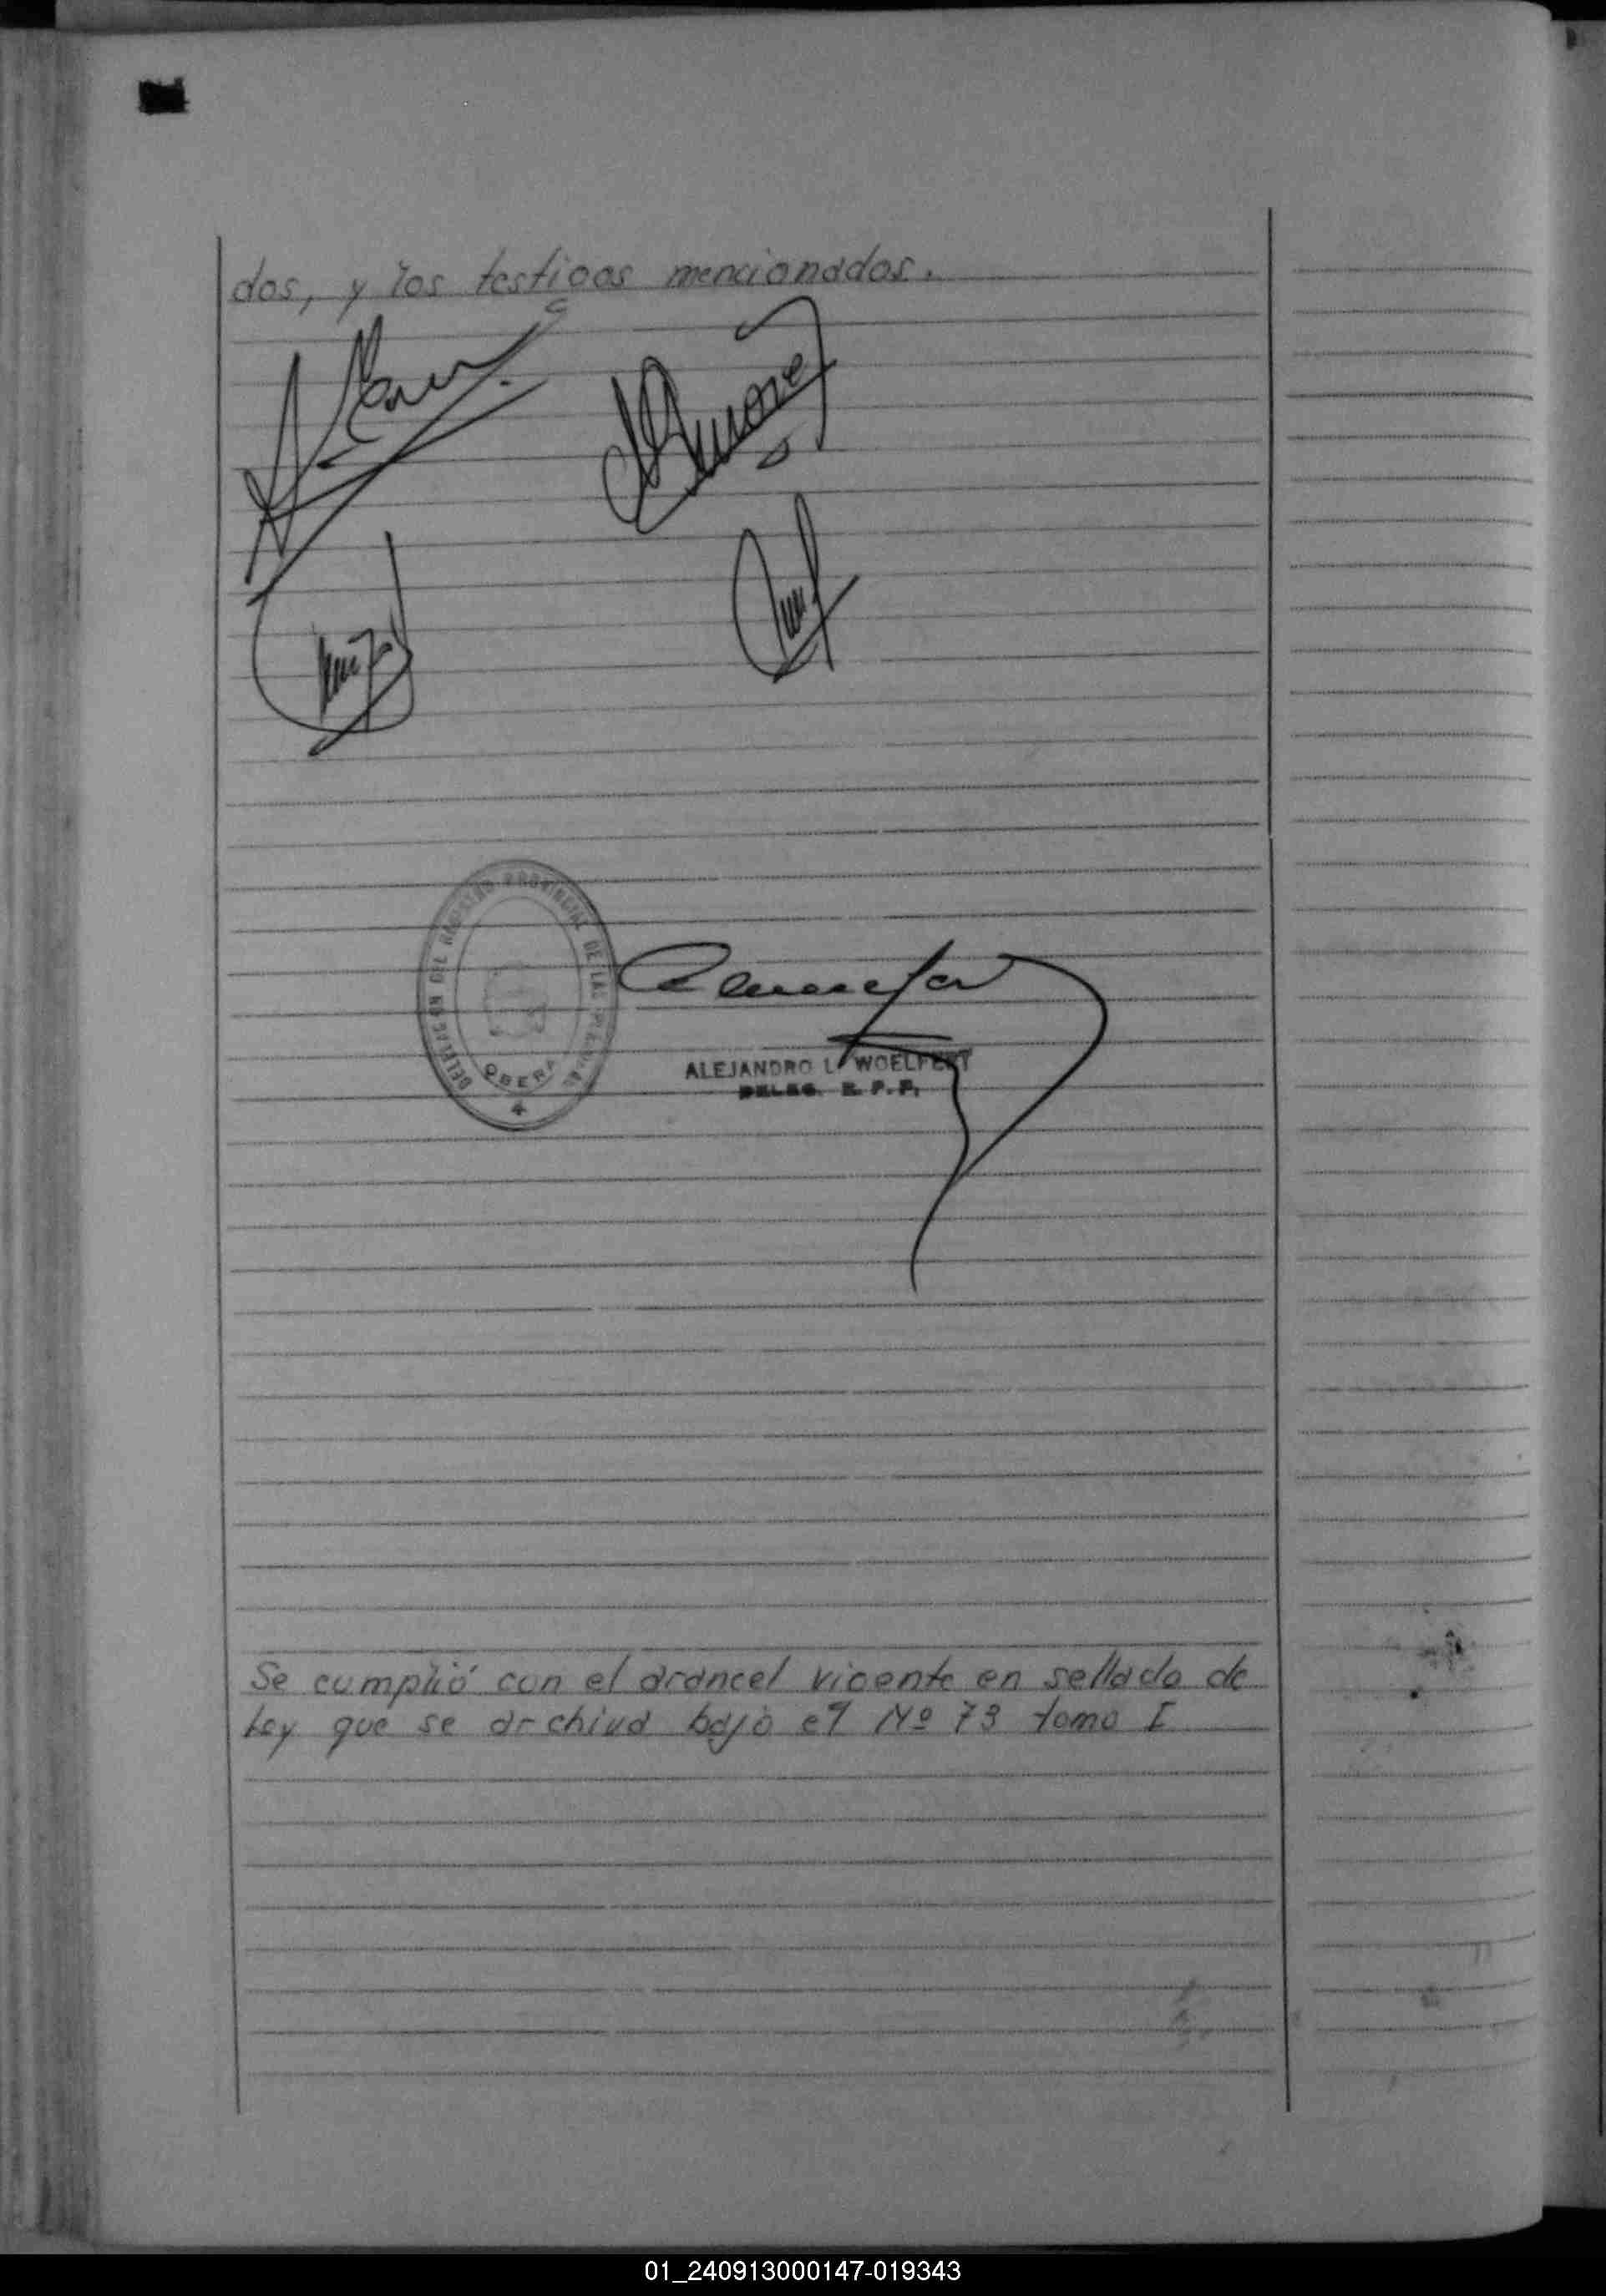 dos, y los testigos mencionados.
DELEGACION DEL REGISTRO PROVINCIAL DE LAS PERSONAS
OBERA
ALEJANDRO L. WOELFERT
DELEG. R. P. P.
Se cumplió con el arancel vigente en sellado de
Ley que se archiva bajo el Nº 73 tomo I
01_240913000147-019343